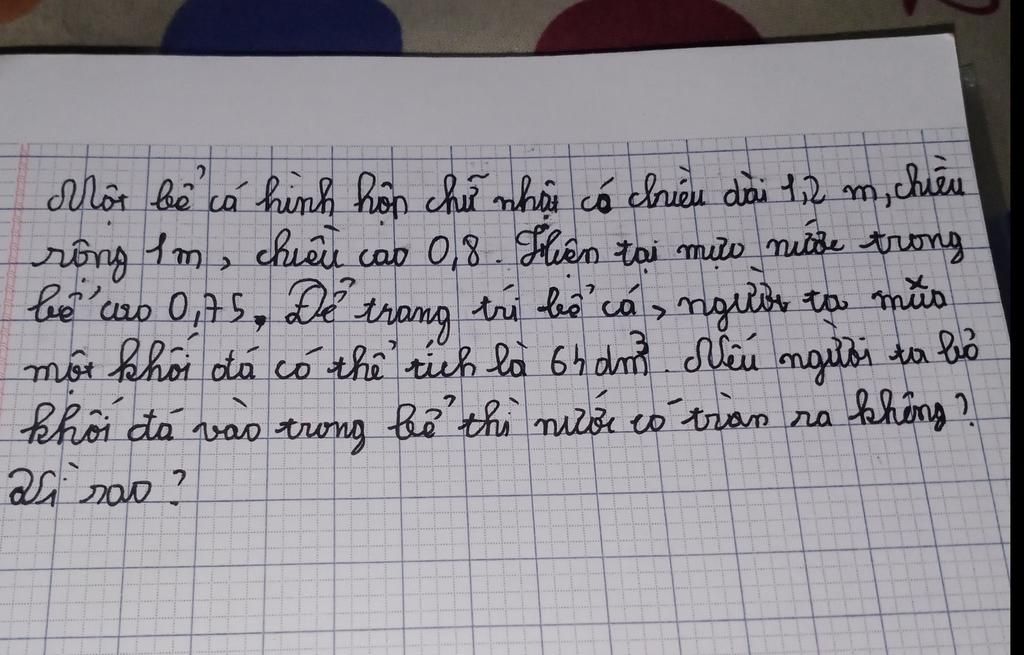 Một bể cá hình hộp chữ nhật có chiều dài 1,2 m, chiều
rộng 1m, chiều cao 0,8. Hiện tại mực nước trong
bể cao 0,75. Để trang trí bể cá, người ta mua
một khối đá có thể tích là dm³. Nếu người ta bỏ
khối đá vào trong bể thì nước có tràn ra không?
Vì sao?